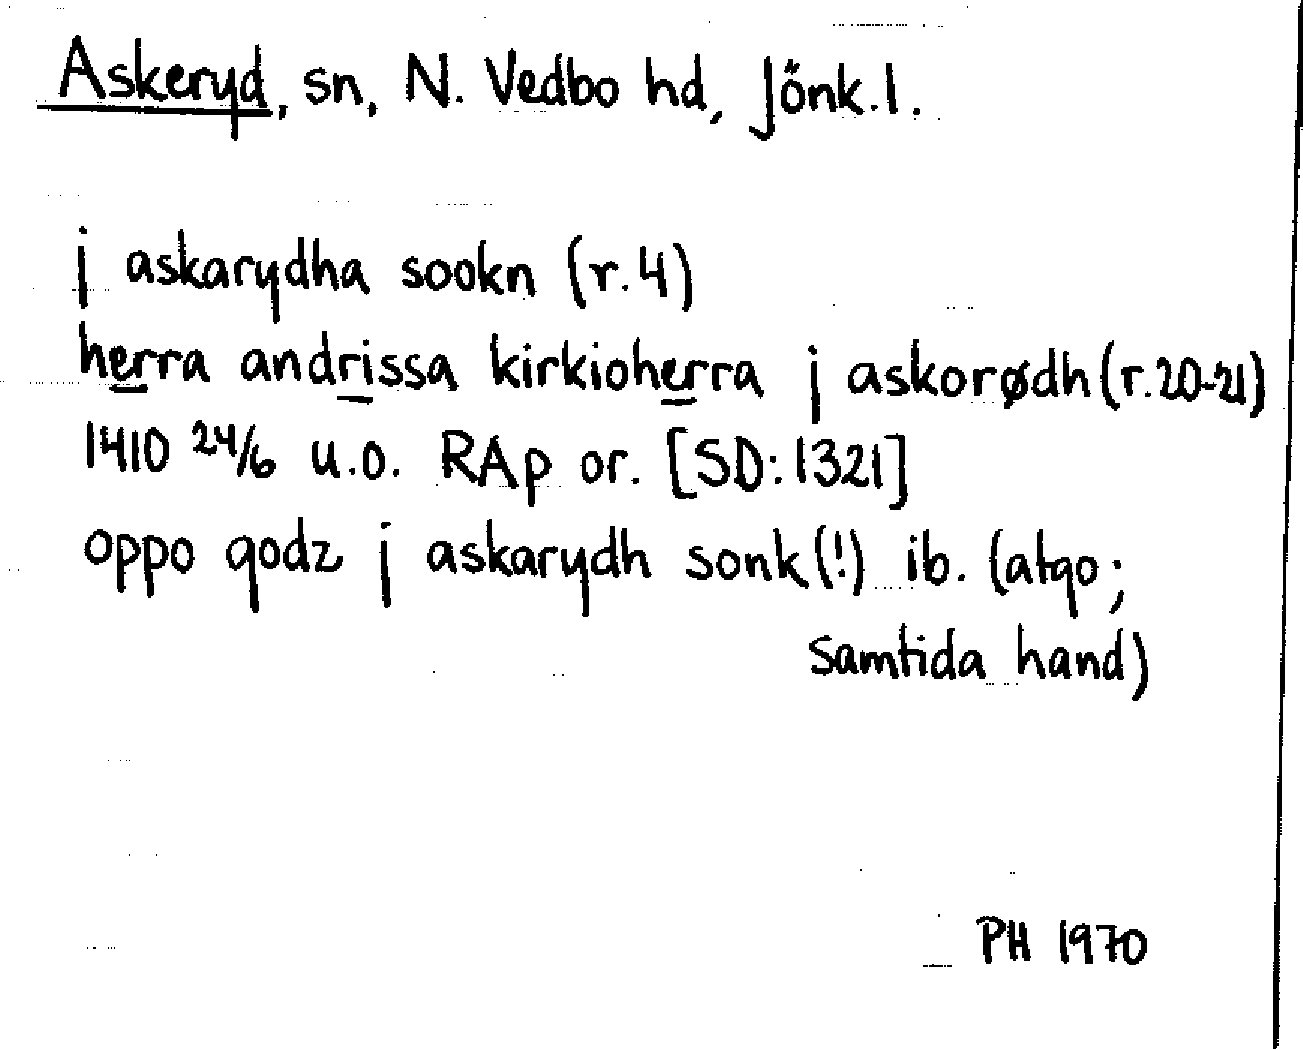 Askeryd, sn, N. Vedbo hd, Jönk.l.
j askarydha sookn (r.4)
herra andrissa kirkioherra j askorødh (r.20-21)
1410 24/6 u.o. RAp or. [SD:1321]
oppo godz j askarydh sonk(!) ib. (atgo;
samtida hand)
PH 1970